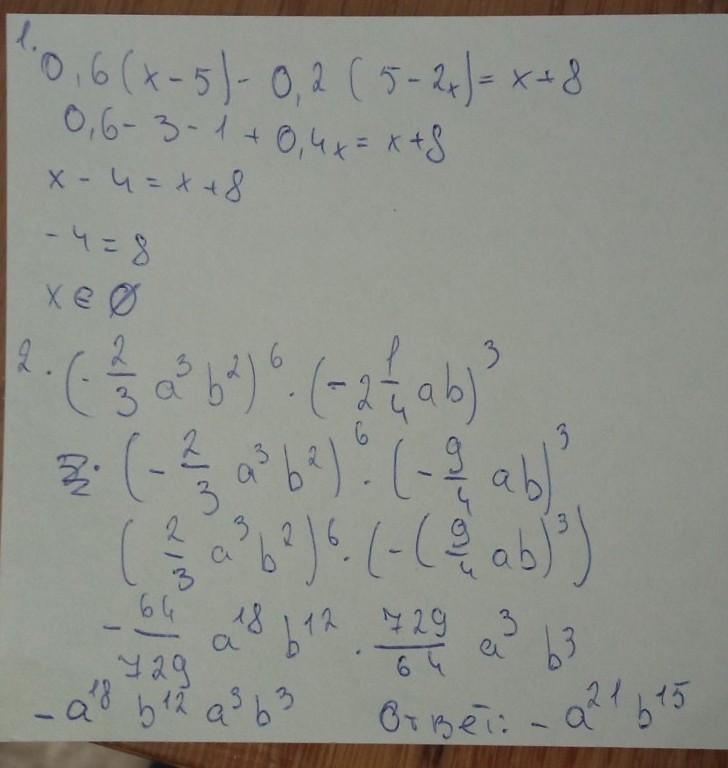 1.
0,6(x-5)-0,2(5-2x)=x+8
0,6-3-1+0,4x=x+8
x-4=x+8
-4=8
x∈∅
2. (-2/3 a³b²)⁶·(-2 1/4 ab)³
(-2/3 a³b²)⁶·(-9/4 ab)³
(2/3 a³b²)⁶·(-(9/4 ab)³)
-64/729 a¹⁸b¹²·729/64 a³b³
-a¹⁸b¹²a³b³ Ответ: -a²¹b¹⁵